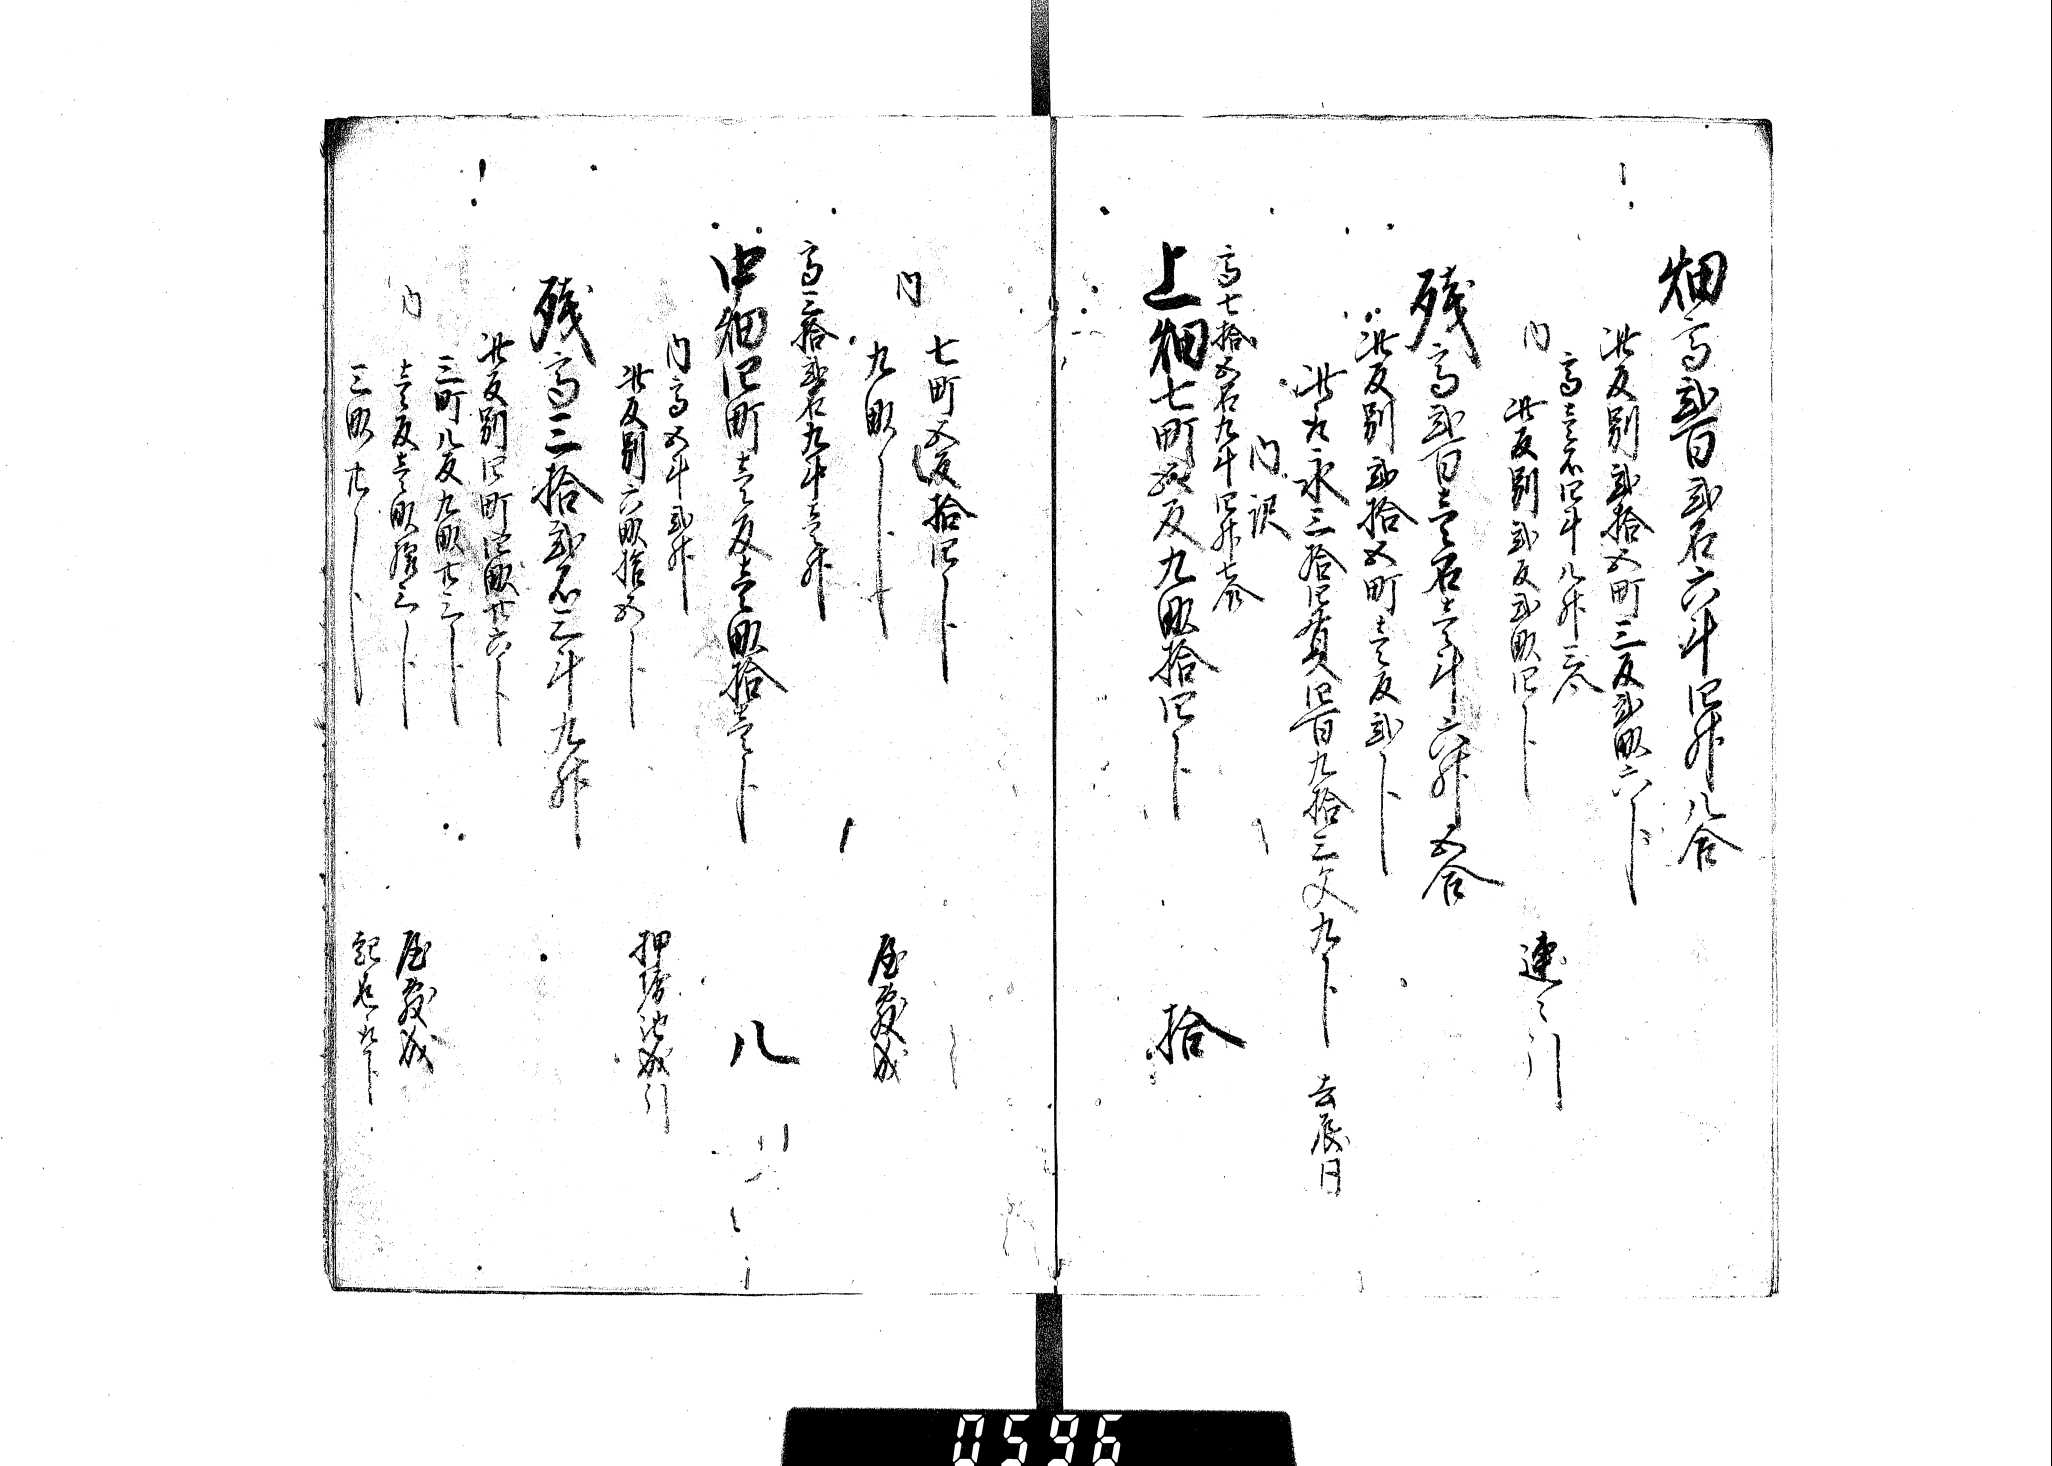 畑高弐百弐石六斗四升八合
此反別弐拾五町三反弐畝六卜
高壱石四斗八升三合
内
此反別弐反弐畝四卜
連々引
残高弐百壱石壱斗六升五合
此反別弐拾五町壱反弐卜
此取永三拾四貫四百九拾三文九卜
去辰同
内訳
高七拾五石九斗四升七合
上畑七町五反九畝拾四卜
拾
七町五反拾四卜
内
九畝卜
屋敷成
高三拾弐石九斗壱升
中畑四町壱反壱畝拾壱卜
八
内高五斗弐升
此反別六畝拾五卜
押堀池成引
残高三拾弐石三斗九升
此反別四町四畝廿六卜
三町八反九畝廿三卜
内
壱反壱畝拾三卜
屋敷成
三畝廿卜
0596